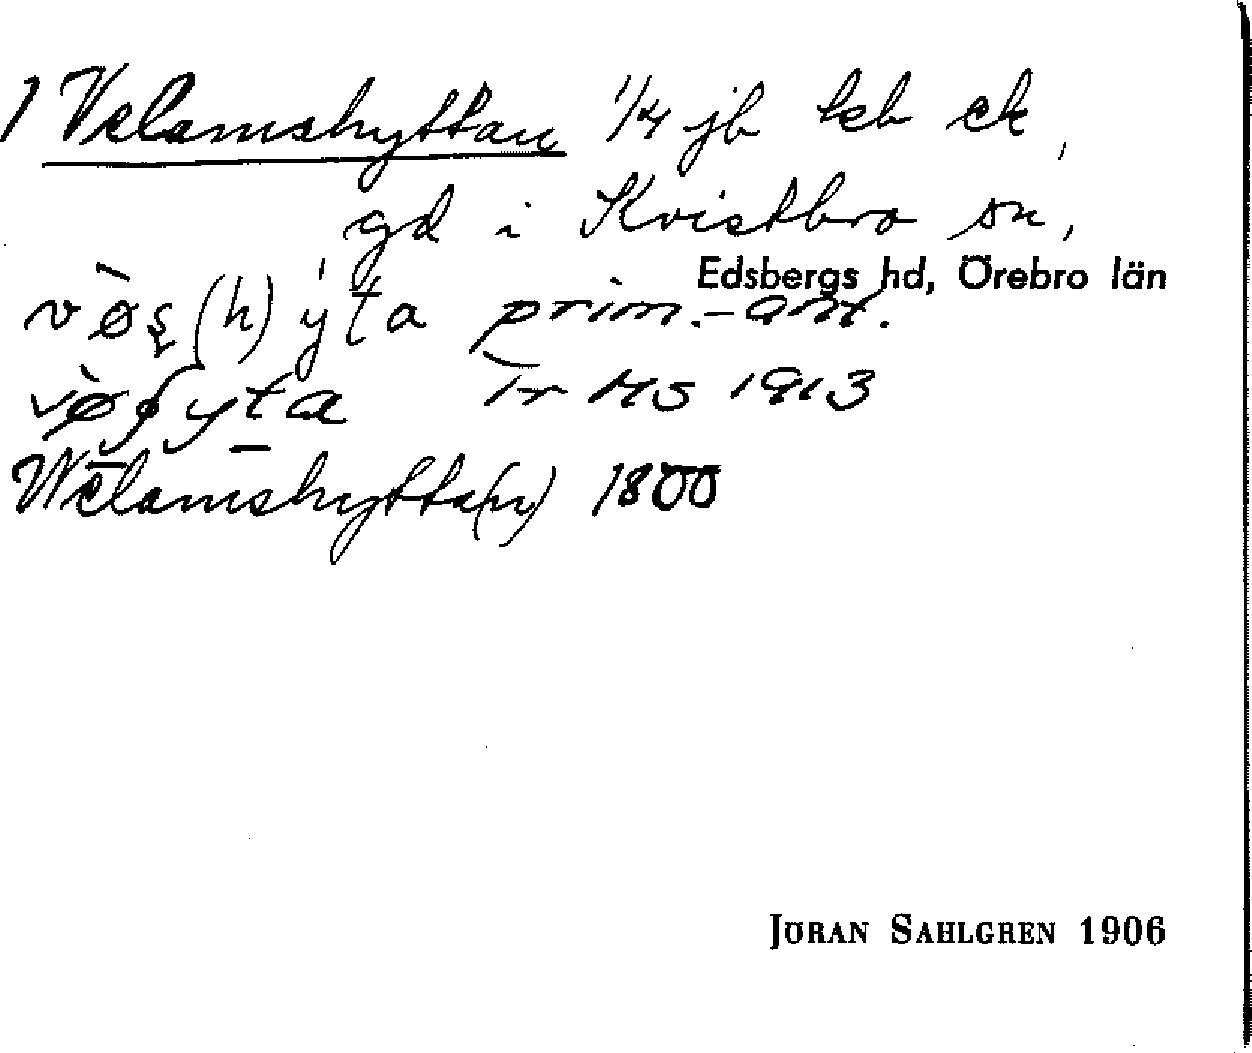 1 Velamshyttan 1/4 jb kb ek,
gd i Kvistbro sn,
Edsbergs hd, Örebro län
vø̀ș(h)ýta prim.-ant.
1913
Wēlamshytta(n) 1800
JÖRAN SAHLGREN 1906